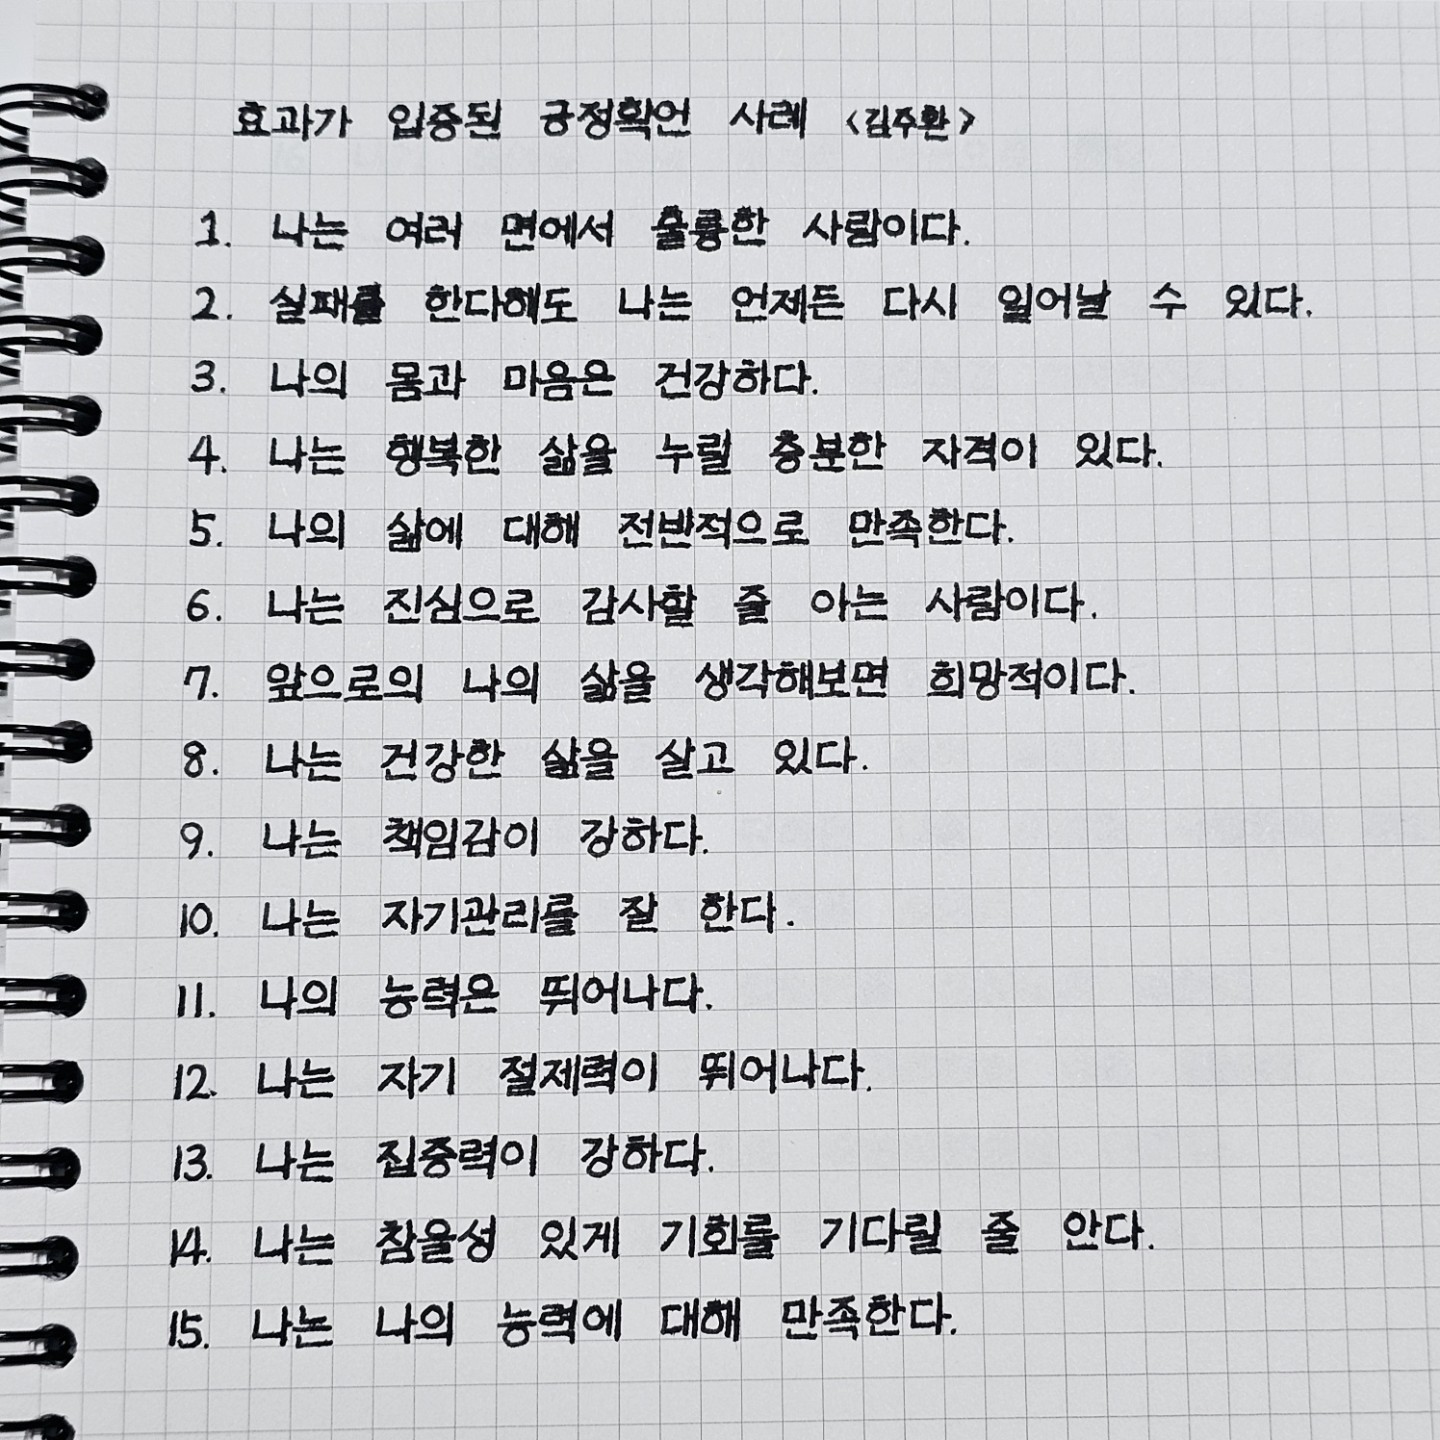 효과가 입증된 긍정확언 사례 <김주환>
1. 나는 여러 면에서 훌륭한 사람이다.
2. 실패를 한다해도 나는 언제든 다시 일어날 수 있다.
3. 나의 몸과 마음은 건강하다.
4. 나는 행복한 삶을 누릴 충분한 자격이 있다.
5. 나의 삶에 대해 전반적으로 만족한다.
6. 나는 진심으로 감사할 줄 아는 사람이다.
7. 앞으로의 나의 삶을 생각해보면 희망적이다.
8. 나는 건강한 삶을 살고 있다.
9. 나는 책임감이 강하다.
10. 나는 자기관리를 잘 한다.
11. 나의 능력은 뛰어나다.
12. 나는 자기 절제력이 뛰어나다.
13. 나는 집중력이 강하다.
14. 나는 참을성 있게 기회를 기다릴 줄 안다.
15. 나는 나의 능력에 대해 만족한다.